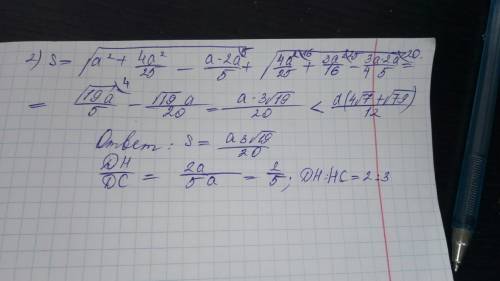 2) S = √(a² + 4a²/25 − a·2a/5) + √(4a²/25 + 9a²/16 − 3a·2a/(4·5)) =
= √19a/5 − √19 a/20 = a·3√19/20 < a(4√7+√79)/12
Ответ: S = a3√19/20
DH/DC = 2a/5a = 2/5; DH:HC = 2:3